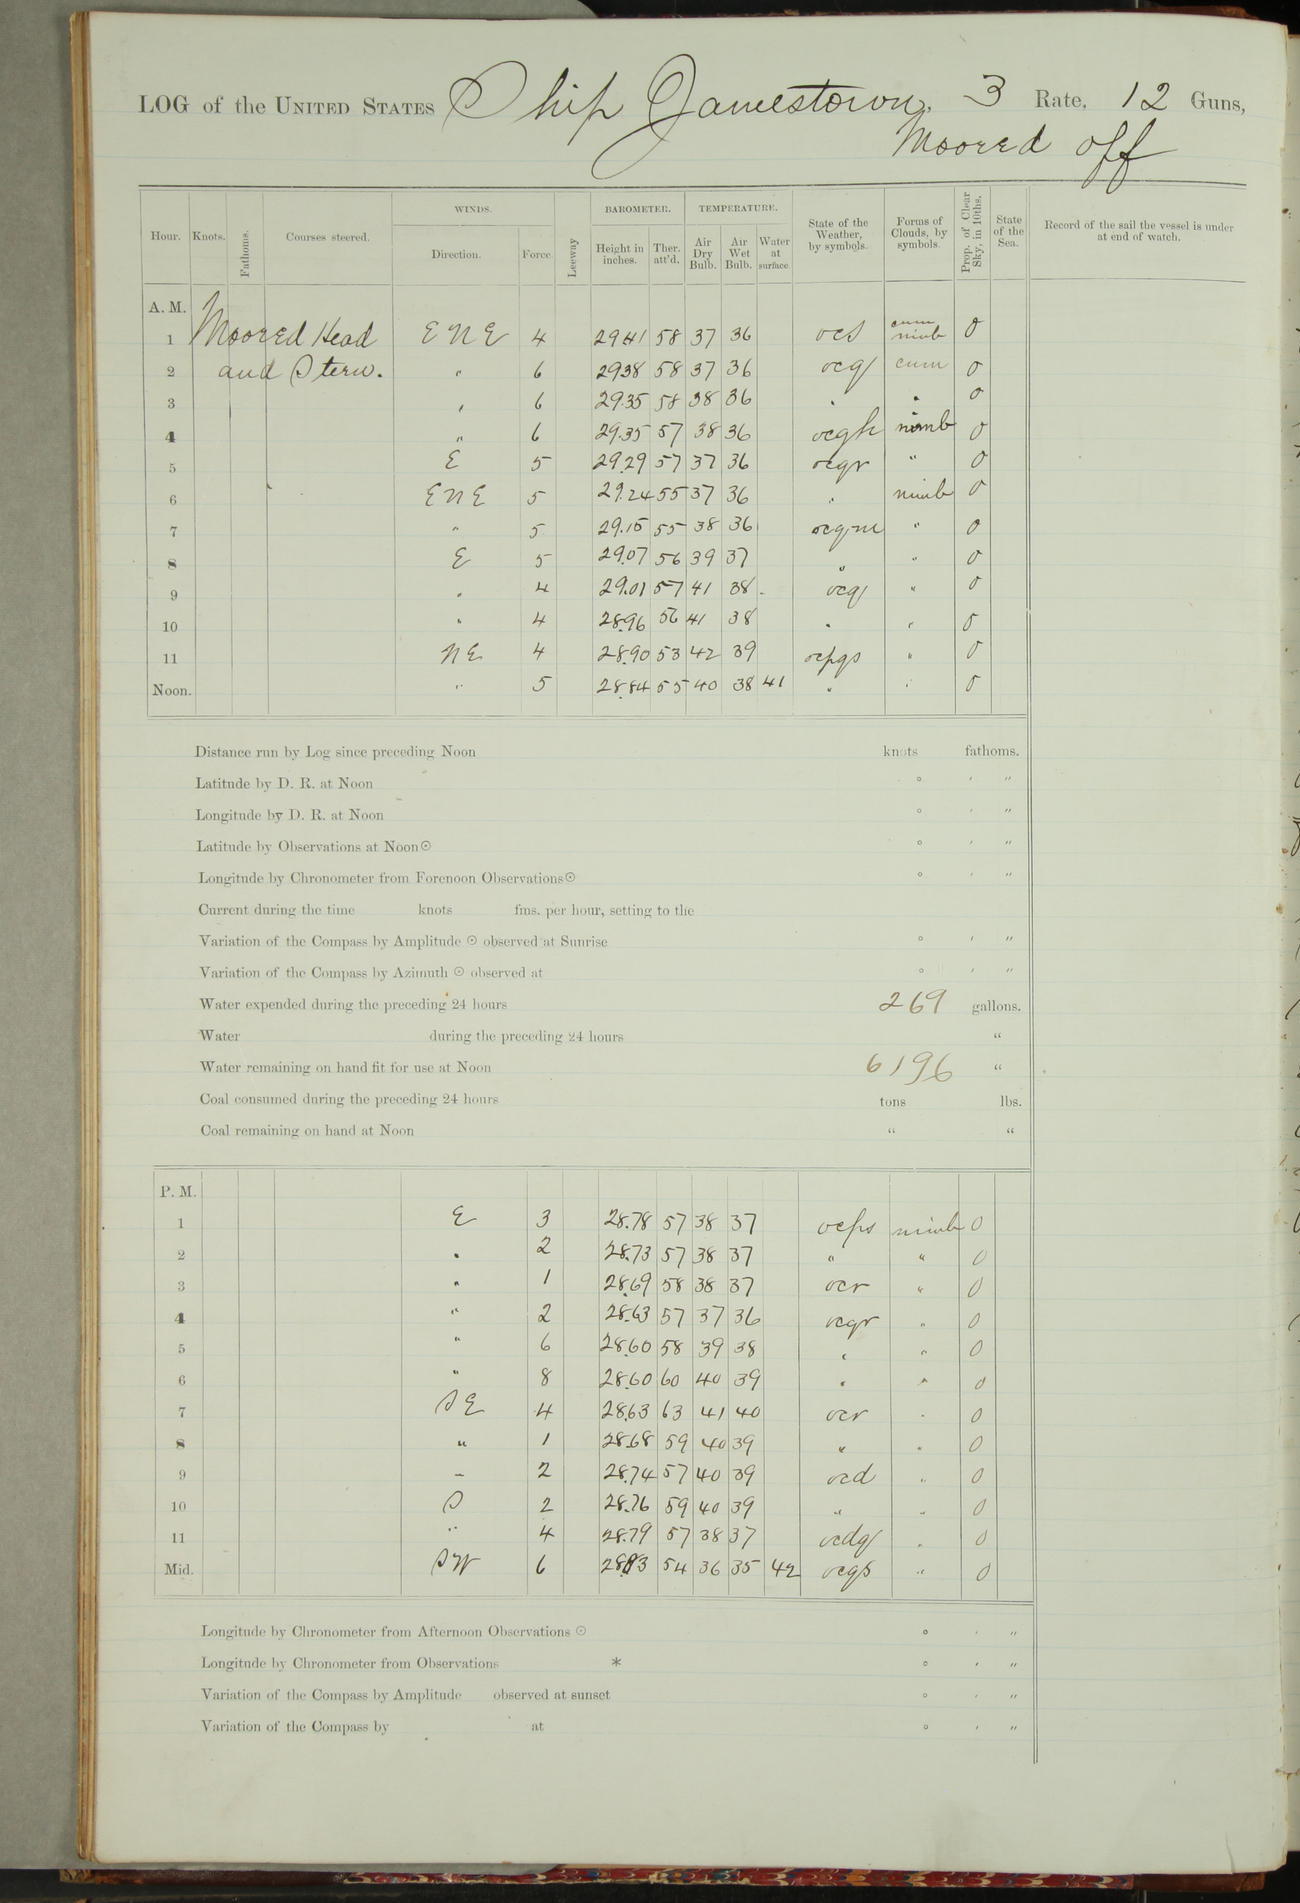 LOG of the UNITED STATES Ship Jamestown, 3 Rate, 12 Guns,
Moored off
Hour. Knots. Fathoms. Courses steered. WINDS. Direction. Force. Leeway BAROMETER. Height in inches. Ther. att'd. TEMPERATURE. Air Dry Bulb. Air Wet Bulb. Water at surface. State of the Weather, by symbols. Forms of Clouds, by symbols. Prop. of Clear Sky, in 10ths. State of the Sea. Record of the sail the vessel is under at end of watch.
A. M.
1 Moored Head ENE 4 29.41 58 37 36 ocs cum nimb 0
2 and Stern. " 6 29.38 58 37 36 ocq cum 0
3 " 6 29.35 58 38 36 " " 0
4 " 6 29.35 57 38 36 ocgh nimb 0
5 E 5 29.29 57 37 36 ocqr " 0
6 ENE 5 29.24 55 37 36 " nimb 0
7 " 5 29.15 55 38 36 ocqm " 0
8 E 5 29.07 56 39 37 " " 0
9 " 4 29.01 57 41 38 ocq " 0
10 " 4 28.96 56 41 38 " " 0
11 NE 4 28.90 53 42 39 ocpqs " 0
Noon. " 5 28.84 55 40 38 41 " " 0
Distance run by Log since preceding Noon knots fathoms.
Latitude by D. R. at Noon ° ′ ″
Longitude by D. R. at Noon ° ′ ″
Latitude by Observations at Noon☉ ° ′ ″
Longitude by Chronometer from Forenoon Observations☉ ° ′ ″
Current during the time knots fms. per hour, setting to the
Variation of the Compass by Amplitude ☉ observed at Sunrise ° ′ ″
Variation of the Compass by Azimuth ☉ observed at ° ′ ″
Water expended during the preceding 24 hours 269 gallons.
Water during the preceding 24 hours "
Water remaining on hand fit for use at Noon 6196 "
Coal consumed during the preceding 24 hours tons lbs.
Coal remaining on hand at Noon " "
P. M.
1 E 3 28.78 57 38 37 ocps nimb 0
2 " 2 28.73 57 38 37 " " 0
3 " 1 28.69 58 38 37 ocr " 0
4 " 2 28.63 57 37 36 ocqr " 0
5 " 6 28.60 58 39 38 " " 0
6 " 8 28.60 60 40 39 " " 0
7 SE 4 28.63 63 41 40 ocr " 0
8 " 1 28.68 59 40 39 " " 0
9 " 2 28.74 57 40 39 ocd " 0
10 S 2 28.76 59 40 39 " " 0
11 " 4 28.79 57 38 37 ocdq " 0
Mid. SW 6 28.83 54 36 35 42 ocqs " 0
Longitude by Chronometer from Afternoon Observations ☉ ° ′ ″
Longitude by Chronometer from Observations * ° ′ ″
Variation of the Compass by Amplitude observed at sunset ° ′ ″
Variation of the Compass by at ° ′ ″